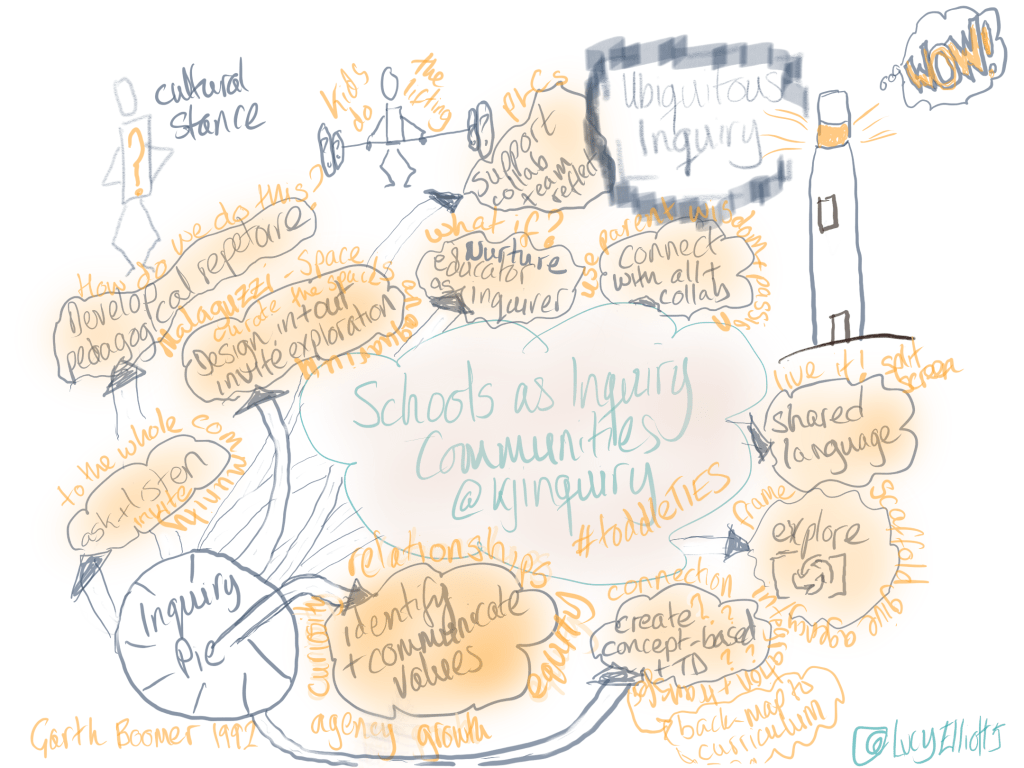 cultural
stance
?
Kids
do
the
lifting
PLCs
support
collab
team
reflect
Ubiquitous
Inquiry
WOW!
How do we do this?
Develop cal repetoire
pedagogical
Malaguzzi - Space
curate the spaces
Design in+out
invite exploration
what if?
eg Nurture
educator
as inquirer
parent wisdom + passion
connect
with all +
collab
Schools as Inquiry
Communities
@kjinquiry
#toddleTIES
live it! split
screen
shared
language
to the whole community
ask + listen
invite
frame
scaffold
give agency
explore
Inquiry
Pie
relationships
curiosity
identify
+ communicate
values
equity
agency growth
connection
create ?
concept-based
+ TD
back map to
curriculum
Garth Boomer 1992
@LucyElliott5